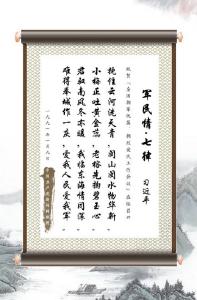 军民情·七律
习近平
挽住云河洗天青，闽山闽水物华新。
小梅正吐黄金蕊，老榕先掬碧玉心。
君驭南风冬亦暖，我临东海情同深。
难得举城作一庆，爱我人民爱我军。